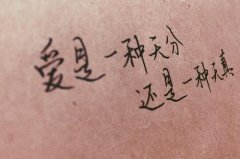 爱是一种天分
还是一种天真